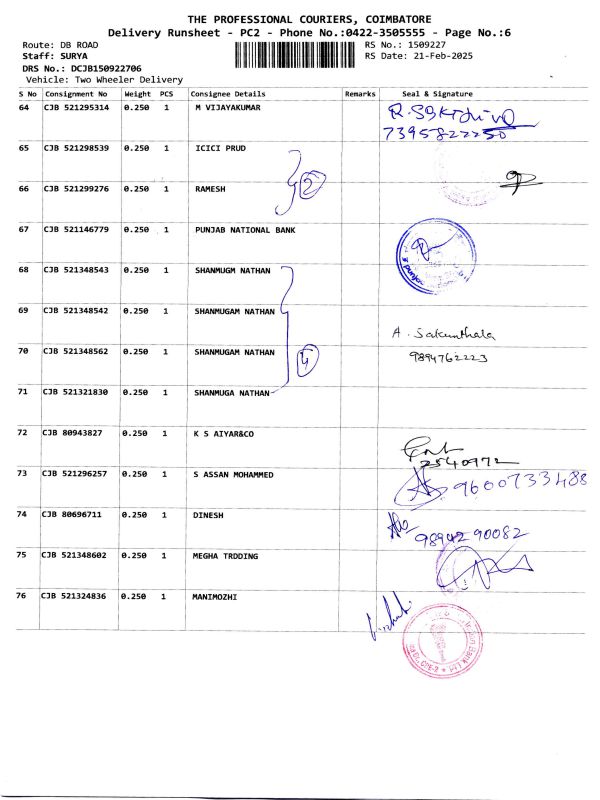 THE PROFESSIONAL COURIERS, COIMBATORE
Delivery Runsheet - PC2 - Phone No.:0422-3505555 - Page No.:6
Route: DB ROAD RS No.: 1509227
Staff: SURYA RS Date: 21-Feb-2025
DRS No.: DCJB150922706
Vehicle: Two Wheeler Delivery
S No Consignment No Weight PCS Consignee Details Remarks Seal & Signature
64 CJB 521295314 0.250 1 M VIJAYAKUMAR
7395822250
65 CJB 521298539 0.250 1 ICICI PRUD
2
66 CJB 521299276 0.250 1 RAMESH
67 CJB 521146779 0.250 1 PUNJAB NATIONAL BANK
68 CJB 521348543 0.250 1 SHANMUGM NATHAN
69 CJB 521348542 0.250 1 SHANMUGAM NATHAN
A. Sakunthala
70 CJB 521348562 0.250 1 SHANMUGAM NATHAN 4 9894762223
71 CJB 521321830 0.250 1 SHANMUGA NATHAN
72 CJB 80943827 0.250 1 K S AIYAR&CO
2540972
73 CJB 521296257 0.250 1 S ASSAN MOHAMMED 9600733488
74 CJB 80696711 0.250 1 DINESH
9894290082
75 CJB 521348602 0.250 1 MEGHA TRDDING
76 CJB 521324836 0.250 1 MANIMOZHI